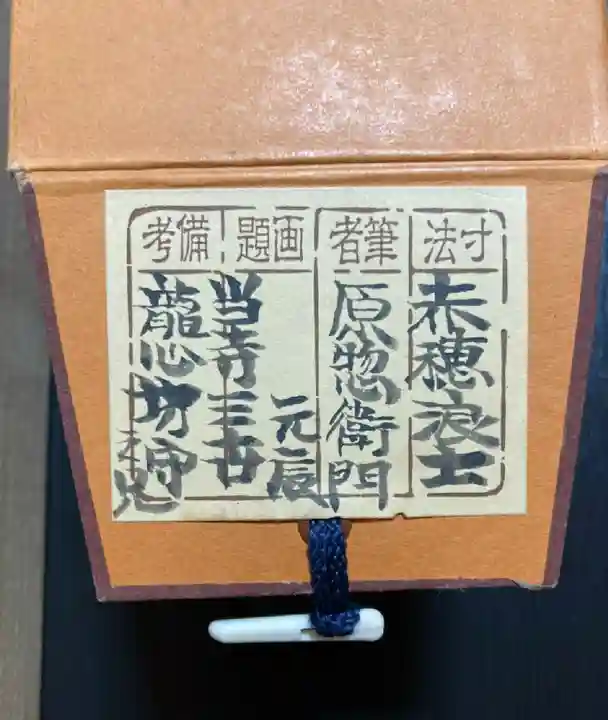 寸法
赤穂浪士
筆者
原惣衛門
画題
元辰
当寺三世
備考
龍心坊師